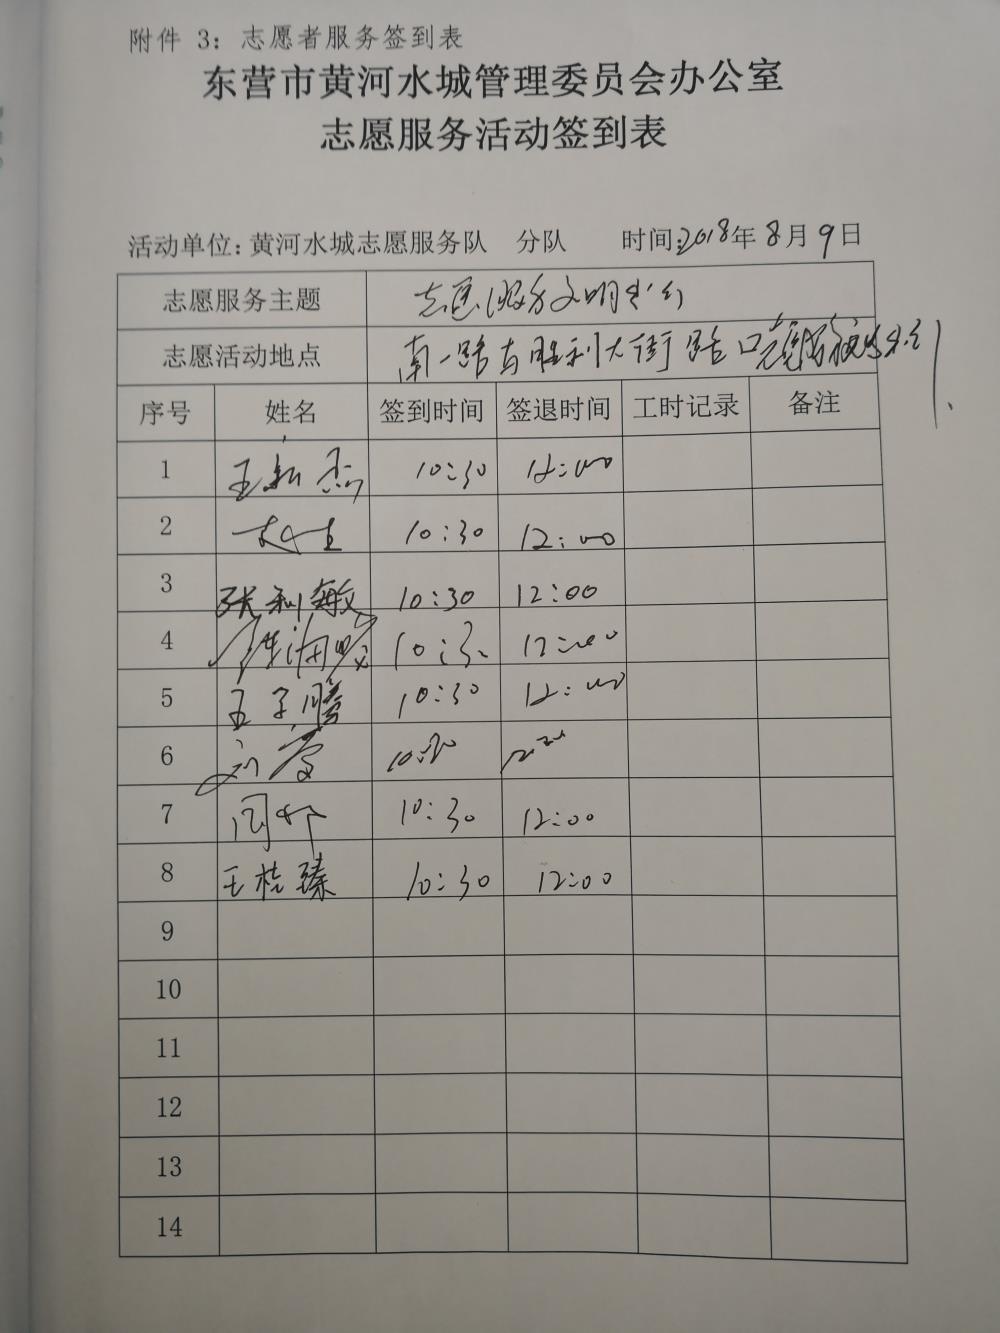 附件 3：志愿者服务签到表
东营市黄河水城管理委员会办公室
志愿服务活动签到表
活动单位：黄河水城志愿服务队 分队 时间：2018年8月9日
志愿服务主题 志愿服务文明出行
志愿活动地点 南一路与胜利大街路口
序号 姓名 签到时间 签退时间 工时记录 备注
1 10:30 12:00
2 10:30 12:00
3 张利敏 10:30 12:00
4 10:30 12:00
5 王子腾 10:30 12:00
6 10:30
7 10:30 12:00
8 王桂臻 10:30 12:00
9
10
11
12
13
14